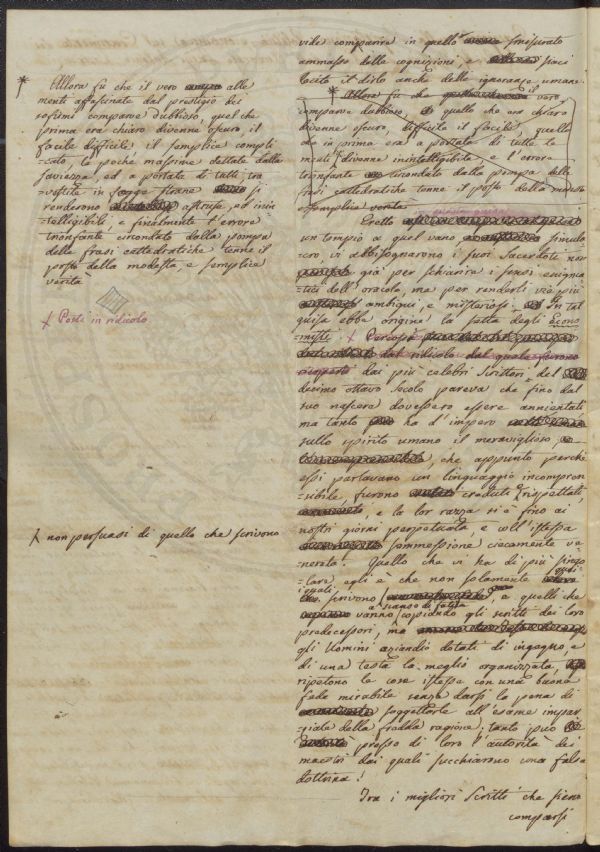 * Allora fu che il vero alle
menti affascinate dal prestigio dei
sofismi comparve dubbioso, quel che
prima era chiaro divenne oscuro, il
facile difficile il semplice compli
=cato, le poche massime dettate dalla
saviezza, ed a portata di tutti tra
=vestite in fogge strane si
rendesono astruse, ed inin
=telligibili, e finalmente l'errore
trionfante circondato dalla pompa
delle frasi cattedratiche tenne il
posto della modesta, e semplice
verità
X Posti in ridicolo
X non persuasi di quello che scrivono
vide comparire in quello smisurato
ammasso delle cognizioni, e siaci
lecito il dirlo anche delle ignoranze umane.
* Allora fu che il vero
comparve dubbioso, quello che era chiaro
divenne oscuro, difficile il facile, quello
che in prima era a portata di tutte le
menti divenne inintelligibile e l'errore
trionfante circondato dalla pompa delle
frasi cattedratiche tenne il posto della modesta
e semplice verità
Eretto
un tempio a quel vano simula
=cro, vi abbisognarono i suoi Sacerdoti non
già per schiarire i sensi enigma
=tici dell'oracolo, ma per renderli vie più
ambigui, e misteriosi. In tal
guisa ebbe origine la setta degli Econo
misti. X Percossi
dal ridicolo dal quale furono
dai più celebri Scrittori del
decimo ottavo secolo pareva che fino dal
suo nascere dovessero essere annientati
ma tanto ha d'impero
sullo spirito umano il meraviglioso
, che appunto perchè
essi parlavano un linguaggio incompren
=sibile, furono creduti, rispettati,
e la lor razza si è fino ai
nostri giorni perpetuata, e coll'istessa
sommessione ciecamente ve
=nerata. Quello che vi ha di più singo
=lare egli è che non solamente
scrivono a quelli che
vanno a scanso di fatica copiando gli scritti dei loro
predecessori, ma
gli Uomini eziandio dotati di ingegno, e
di una testa la meglio organizzata,
ripetono le cose istesse con una buona
fede mirabile senza darsi la pena di
soggettarle all'esame impar
=ziale della fredda ragione; tanto può
presso di loro l'autorità dei
maestri dai quali succhiarono una falsa
dottrina!
Tra i migliori scritti che siano
comparsi